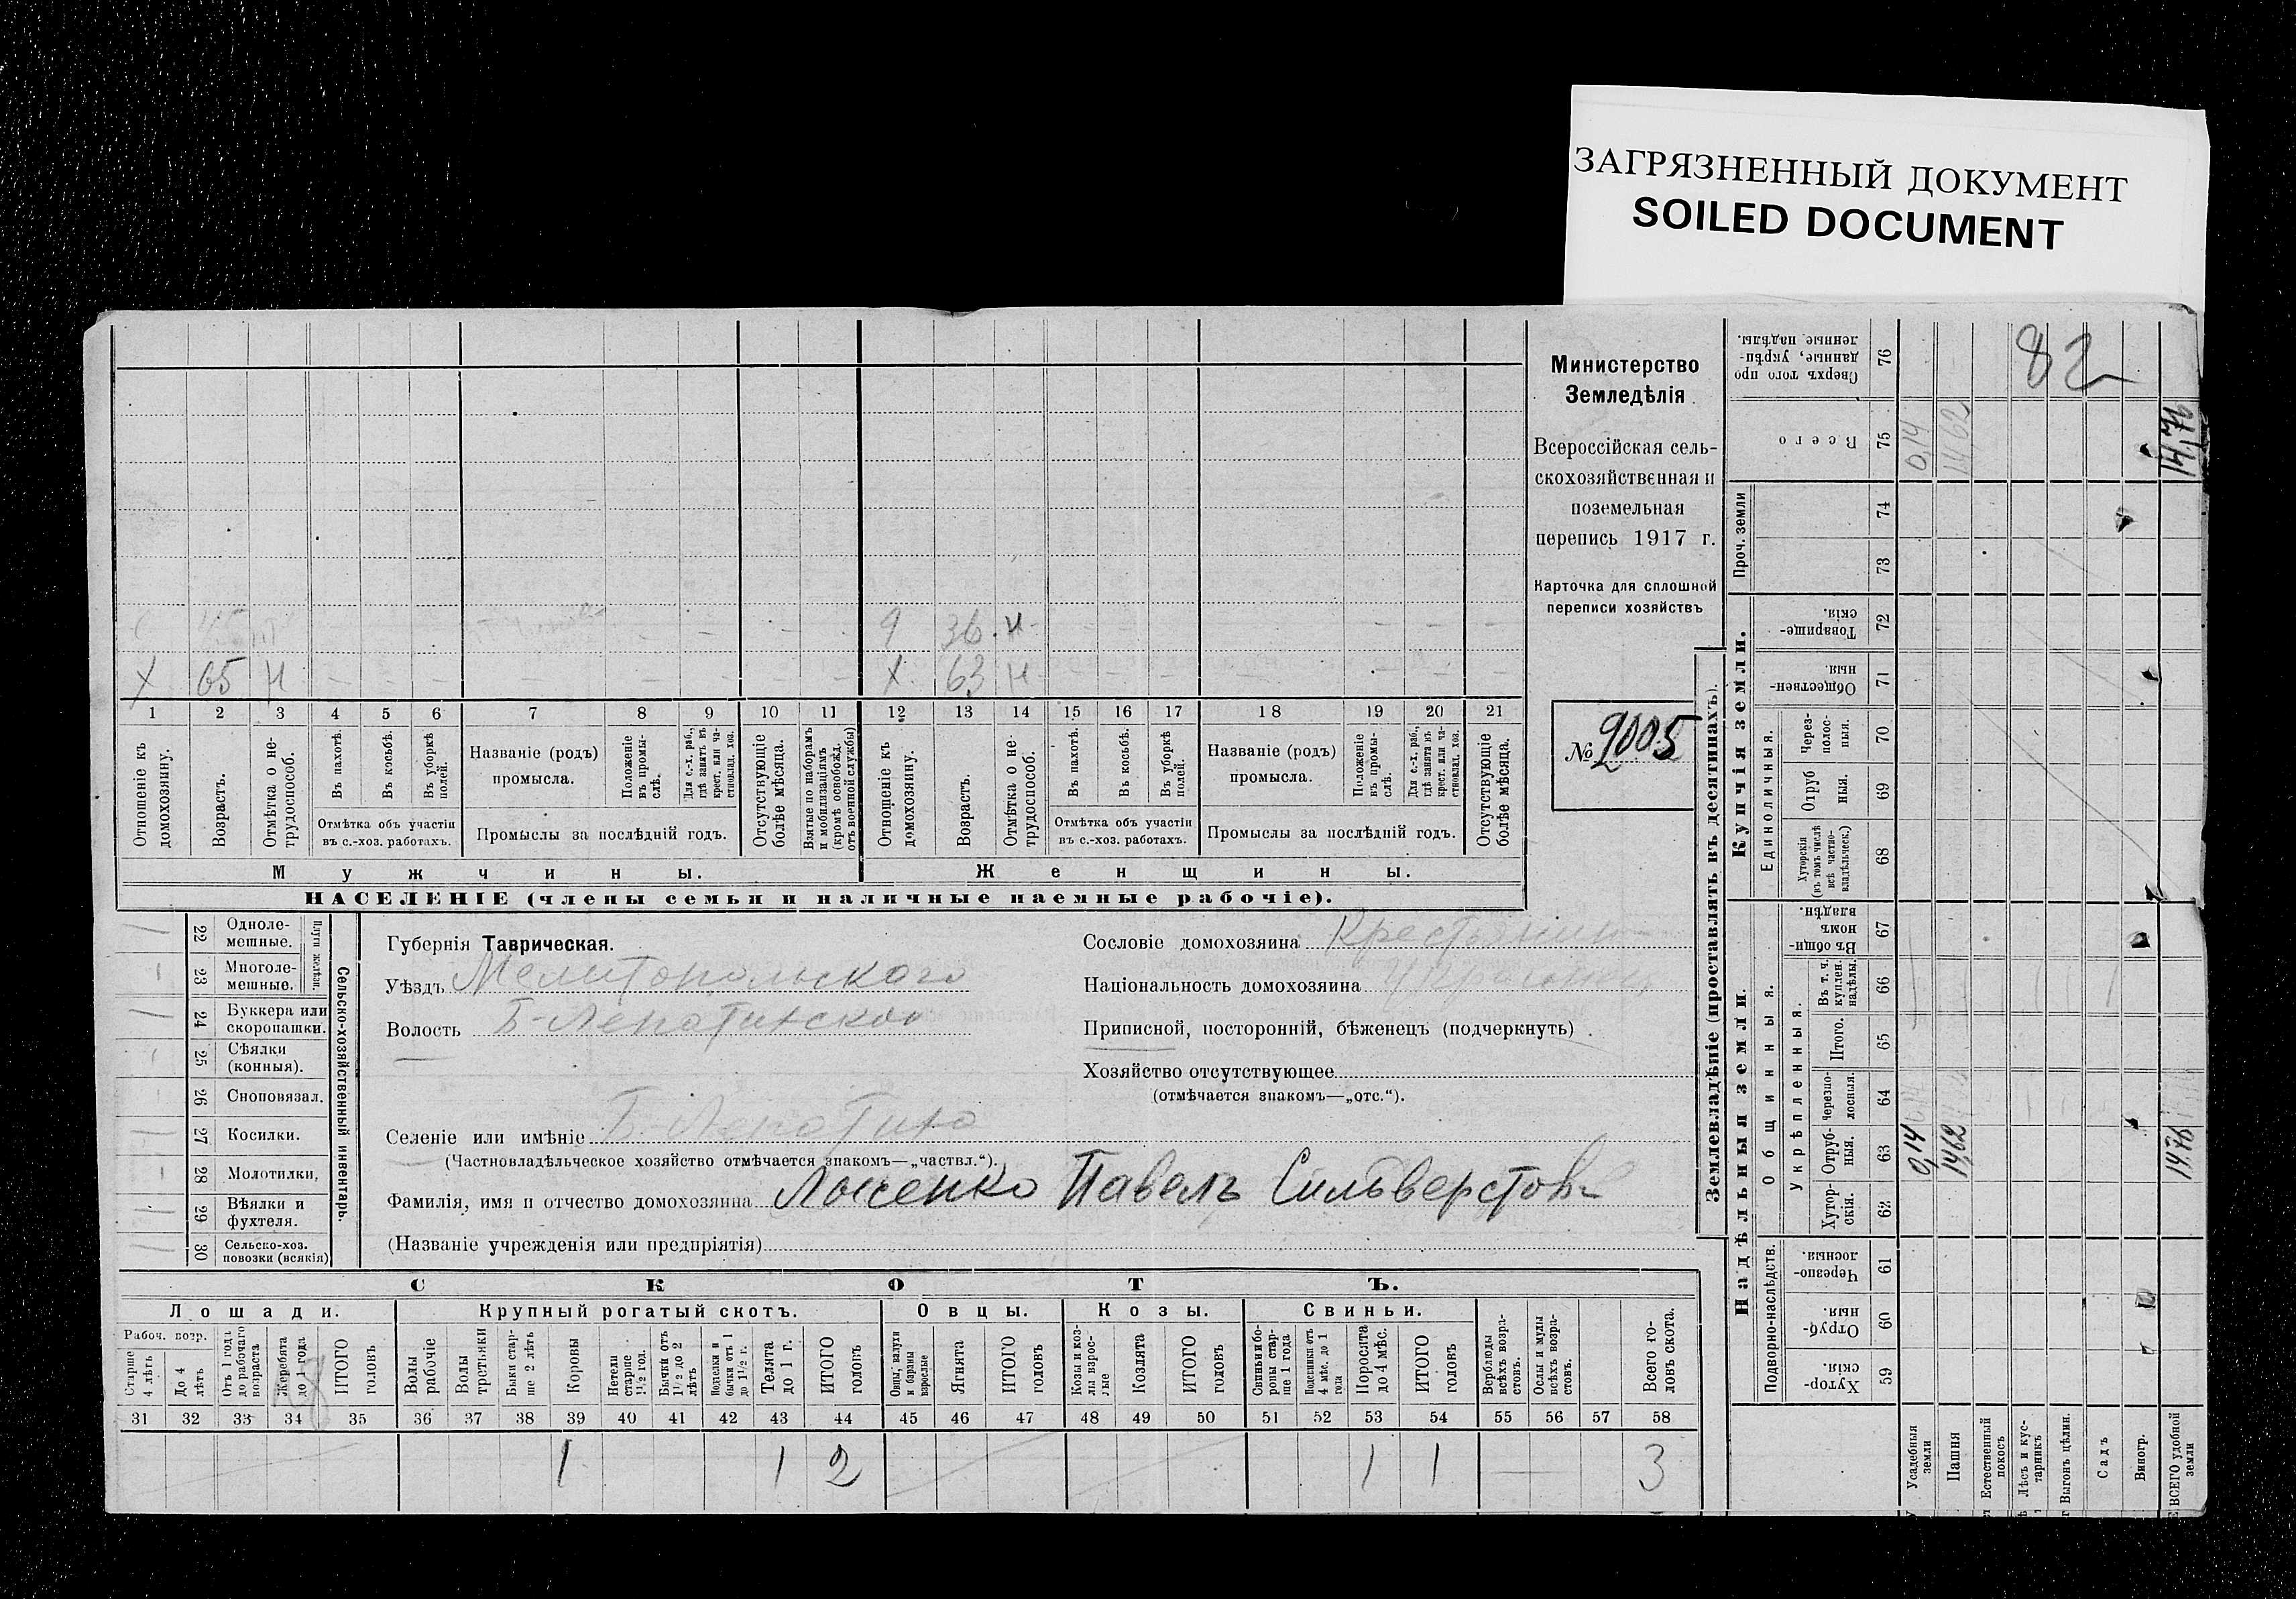 ЗАГРЯЗНЕННЫЙ ДОКУМЕНТ
SOILED DOCUMENT
82
Министерство
Земледѣлія
Всероссійская сель-
скохозяйственная и
поземельная
перепись 1917 г.
Карточка для сплошной
переписи хозяйствъ
№ 9005
9 36 н
X 65 н X 63 н
1 2 3 4 5 6 7 8 9 10 11 12 13 14 15 16 17 18 19 20 21
Отношеніе къ домохозяину.
Возрастъ.
Отмѣтка о не-трудоспособ.
Въ пахотѣ.
Въ косьбѣ.
Въ уборкѣ полей.
Отмѣтка объ участіи
въ с.-хоз. работахъ.
Названіе (родъ)
промысла.
Положеніе въ промы-слѣ.
Для с.-х. раб., гдѣ занятъ въ крест. или ча-стновлад. хоз.
Промыслы за послѣдній годъ.
Отсутствующіе болѣе мѣсяца.
Взятые по наборамъ и мобилизаціямъ (кромѣ освобожд. отъ военной службы)
Отношеніе къ домохозяину.
Возрастъ.
Отмѣтка о не-трудоспособ.
Въ пахотѣ.
Въ косьбѣ.
Въ уборкѣ полей.
Отмѣтка объ участіи
въ с.-хоз. работахъ.
Названіе (родъ)
промысла.
Положеніе въ промы-слѣ.
Для с.-х. раб., гдѣ занята въ крест. или ча-стновлад. хоз.
Промыслы за послѣдній годъ.
Отсутствующіе болѣе мѣсяца.
Мужчины. Женщины.
НАСЕЛЕНІЕ (члены семьи и наличные наемные рабочіе).
22 Одноле-мешные.
23 Многоле-мешные.
Плуги желѣзн.
24 Буккера или скоропашки.
25 Сѣялки (конныя).
26 Сноповязал.
27 Косилки.
28 Молотилки.
29 Вѣялки и фухтеля.
30 Сельско-хоз. повозки (всякія)
Сельско-хозяйственный инвентарь.
Губернія Таврическая.
Уѣздъ Мелитопольскаго
Волость Б-Лепатинской
Селеніе или имѣніе Б. Лепатиха
(Частновладѣльческое хозяйство отмѣчается знакомъ—„частвл.“).
Фамилія, имя и отчество домохозяина Лысенко Павелъ Сильверстов
(Названіе учрежденія или предпріятія)
Сословіе домохозяина Крестьянин
Національность домохозяина
Приписной, посторонній, бѣженецъ (подчеркнуть)
Хозяйство отсутствующее
(отмѣчается знакомъ—„отс.“).
СКОТЪ.
Лошади. Крупный рогатый скотъ. Овцы. Козы. Свиньи.
Рабоч. возр.
Старше 4 лѣтъ
До 4 лѣтъ
Отъ 1 года до рабочаго возраста
Жеребята до 1 года
ИТОГО головъ
Волы рабочіе
Волы третьяки
Быки стар-ше 2 лѣтъ
Коровы
Нетели старше 1½ год.
Бычки отъ 1½ до 2 лѣтъ
Подтелки и бычки отъ 1 до 1½ г.
Телята до 1 г.
ИТОГО головъ
Овцы, валухи и бараны взрослые
Ягнята
ИТОГО головъ
Козы и коз-лы взрос-лые
Козлята
ИТОГО головъ
Свиньи и бо-ровы стар-ше 1 года
Подсвинки отъ 4 мѣс. до 1 года
Поросята до 4 мѣс.
ИТОГО головъ
Верблюды всѣхъ возра-стовъ.
Ослы и мулы всѣхъ возра-стовъ.
Всего го-ловъ скота.
31 32 33 34 35 36 37 38 39 40 41 42 43 44 45 46 47 48 49 50 51 52 53 54 55 56 57 58
1 1 2 1 1 3
Землевладѣніе (проставлять въ десятинахъ).
Надѣльныя земли. Купчія земли. Проч. земли
Подворно-наслѣдств.
Общинныя.
Укрѣпленныя.
Единоличныя.
Хутор-скія. 59
Отруб-ныя. 60
Черезпо-лосныя. 61
Хутор-скія. 62
Отруб-ныя. 63
Черезпо-лосныя. 64
Итого. 65
Въ т. ч. куплен. надѣлы. 66
Въ общин-номъ владѣн. 67
Хуторскія (въ томъ числѣ всѣ частно-владѣльческ.) 68
Отруб ныя. 69
Через-полос-ныя. 70
Обществен-ныя. 71
Товарище-скія. 72
73
74
Всего 75
Сверхъ того про данные, укрѣп-ленные надѣлы. 76
Усадебныя земли 0,14 0,14
Пашня 14,62 14,62
Естественный покосъ
Лѣсъ и кус-тарникъ
Выгонъ цѣлин.
Садъ
Виногр.
ВСЕГО удобной земли 14,76 14,76